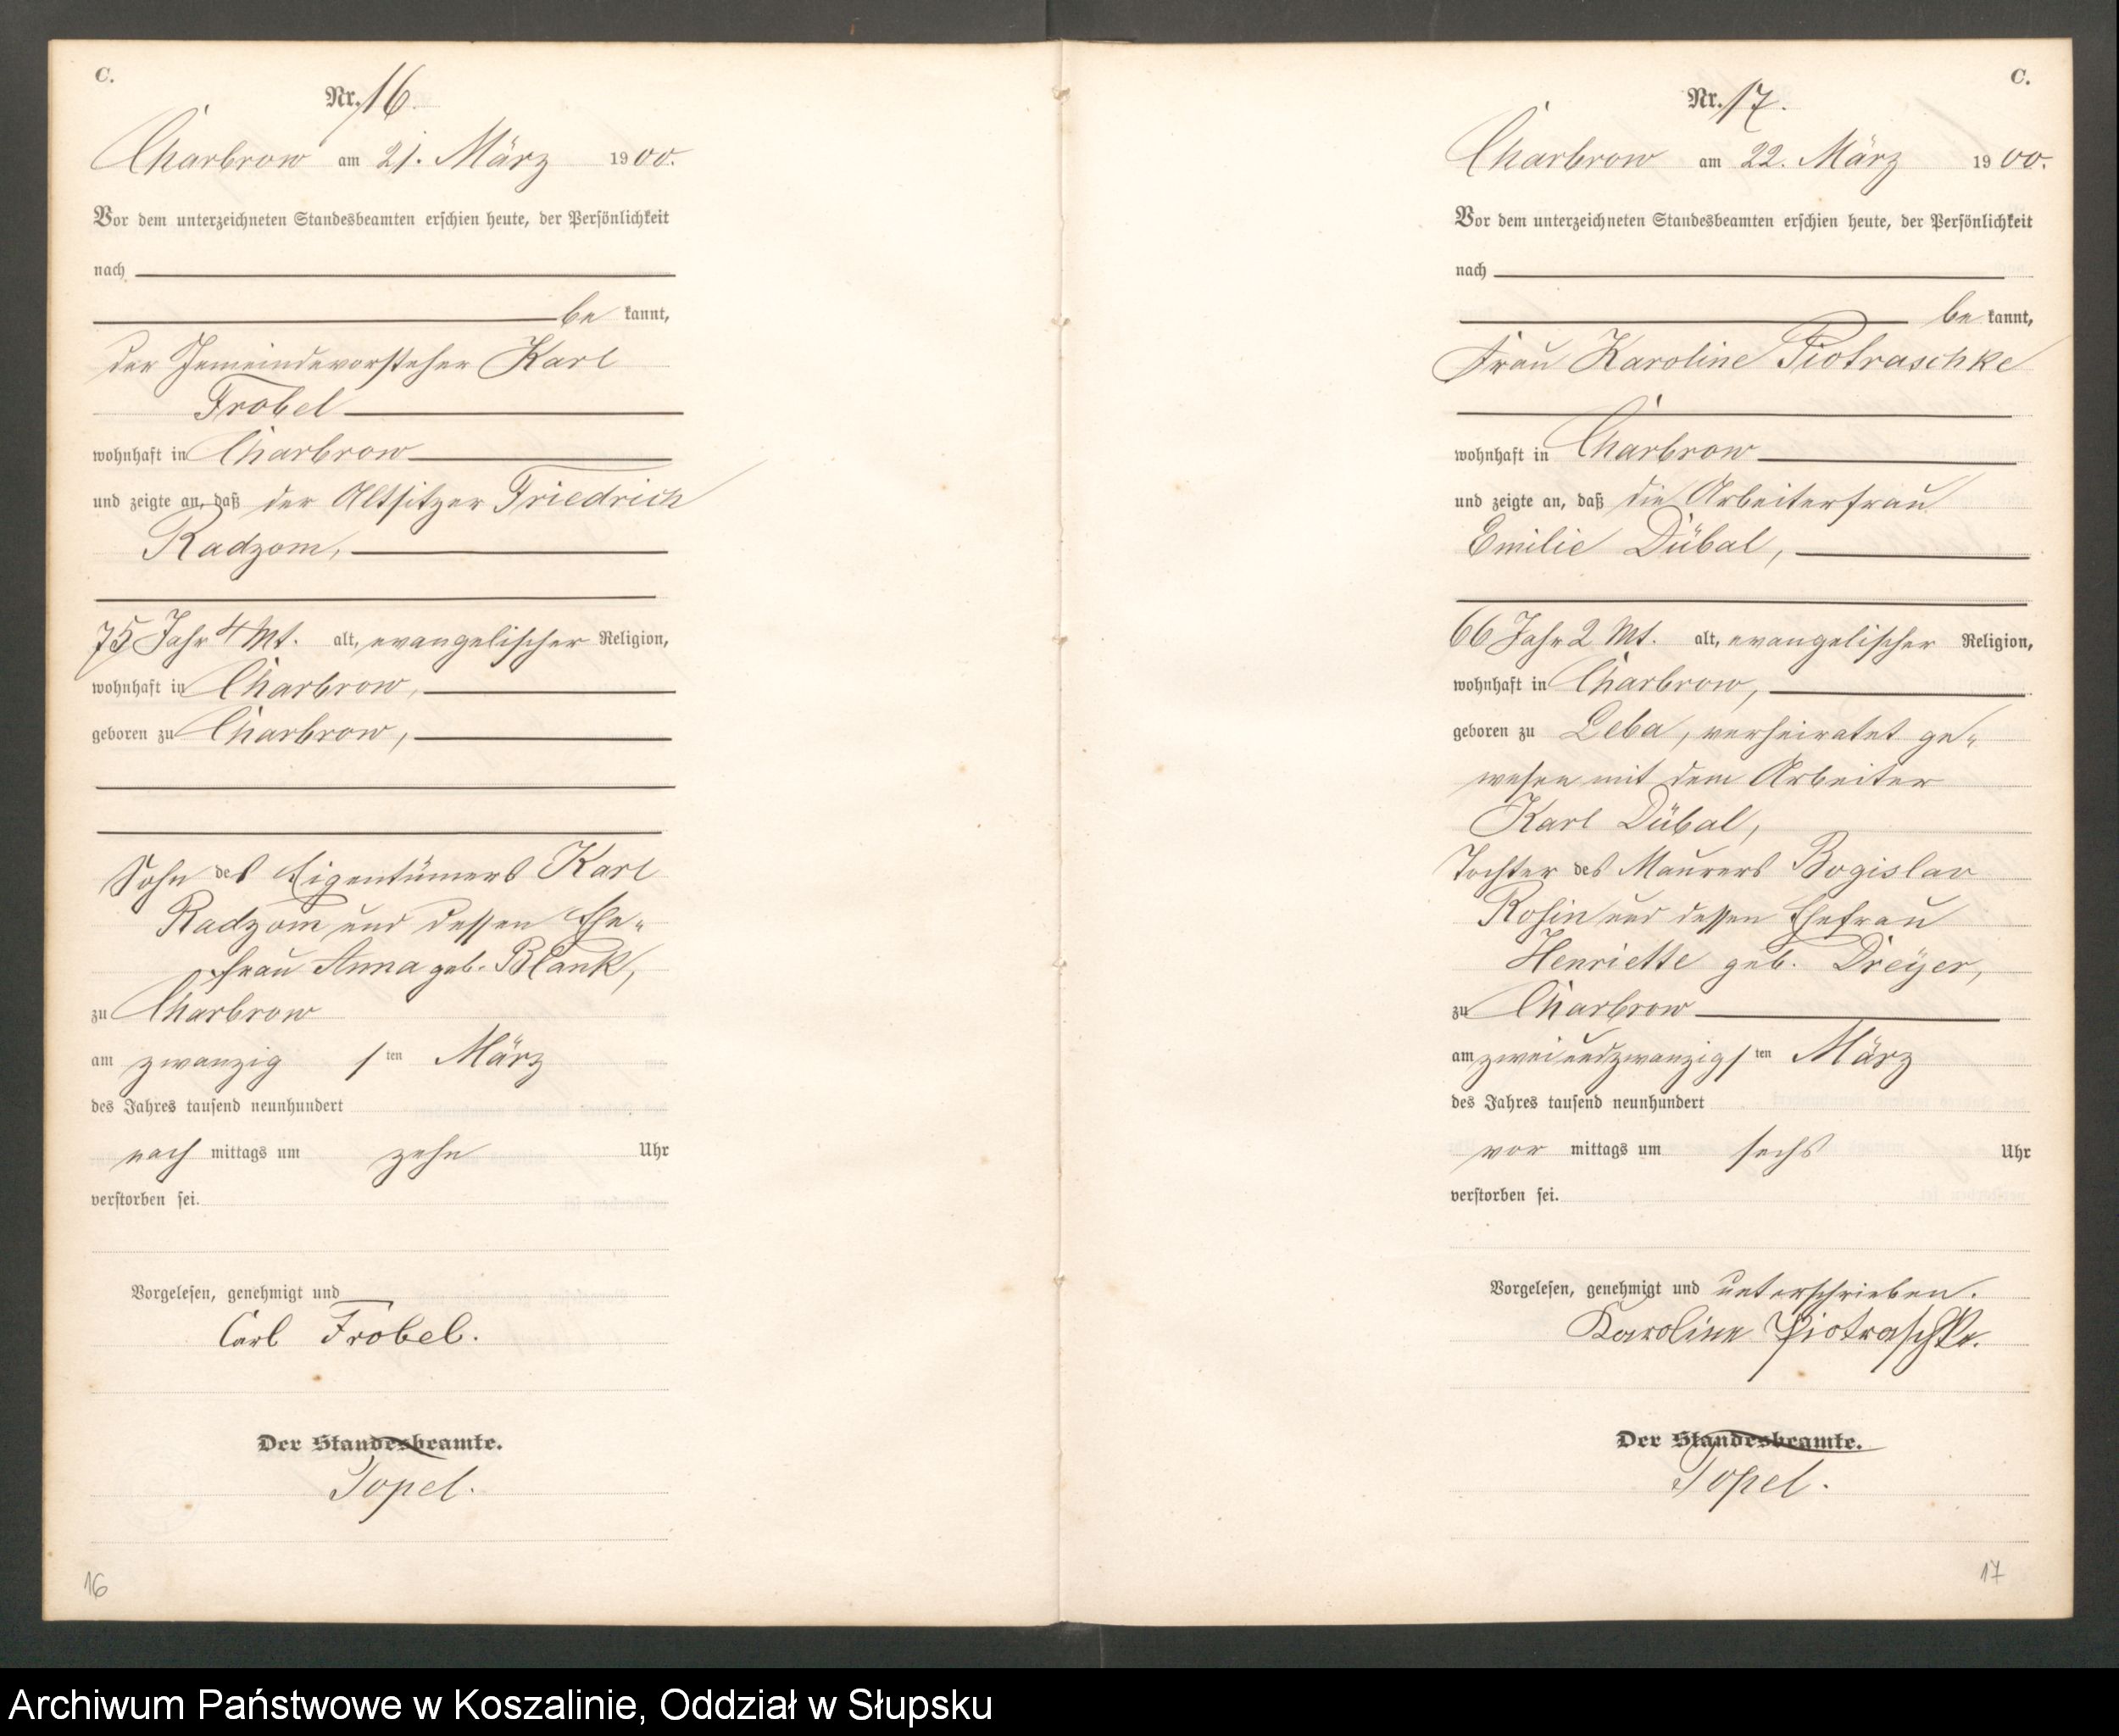 C.
Nr. 16.
Charbrow am 21. März 1900.
Vor dem unterzeichneten Standesbeamten erschien heute, der Persönlichkeit
nach
be kannt,
der Gemeindevorsteher Karl
Frobel
wohnhaft in Charbrow
und zeigte an, daß der Altsitzer Friedrich
Radzom,
75 Jahr 4 Mt. alt, evangelischer Religion,
wohnhaft in Charbrow,
geboren zu Charbrow,
Sohn des Eigentümers Karl
Radzom und dessen Ehe-
frau Anna geb. Blank,
zu Charbrow
am zwanzigsten März
des Jahres tausend neunhundert
nach mittags um zehn Uhr
verstorben sei.
Vorgelesen, genehmigt und
Carl Frobel.
Der Standesbeamte.
Topel.
16
C.
Nr. 17.
Charbrow am 22. März 1900.
Vor dem unterzeichneten Standesbeamten erschien heute, der Persönlichkeit
nach
be kannt,
Frau Karoline Piotraschke
wohnhaft in Charbrow
und zeigte an, daß die Arbeiterfrau
Emilie Dübal,
66 Jahr 2 Mt. alt, evangelischer Religion,
wohnhaft in Charbrow,
geboren zu Leba, verheiratet ge-
wesen mit dem Arbeiter
Karl Dübal,
Tochter des Maurers Bogislav
Rosin und dessen Ehefrau
Henriette geb. Dreÿer,
zu Charbrow
am zweiundzwanzigsten März
des Jahres tausend neunhundert
vor mittags um sechs Uhr
verstorben sei.
Vorgelesen, genehmigt und unterschrieben.
Karoline Piotraschke.
Der Standesbeamte.
Topel.
17
Archiwum Państwowe w Koszalinie, Oddział w Słupsku